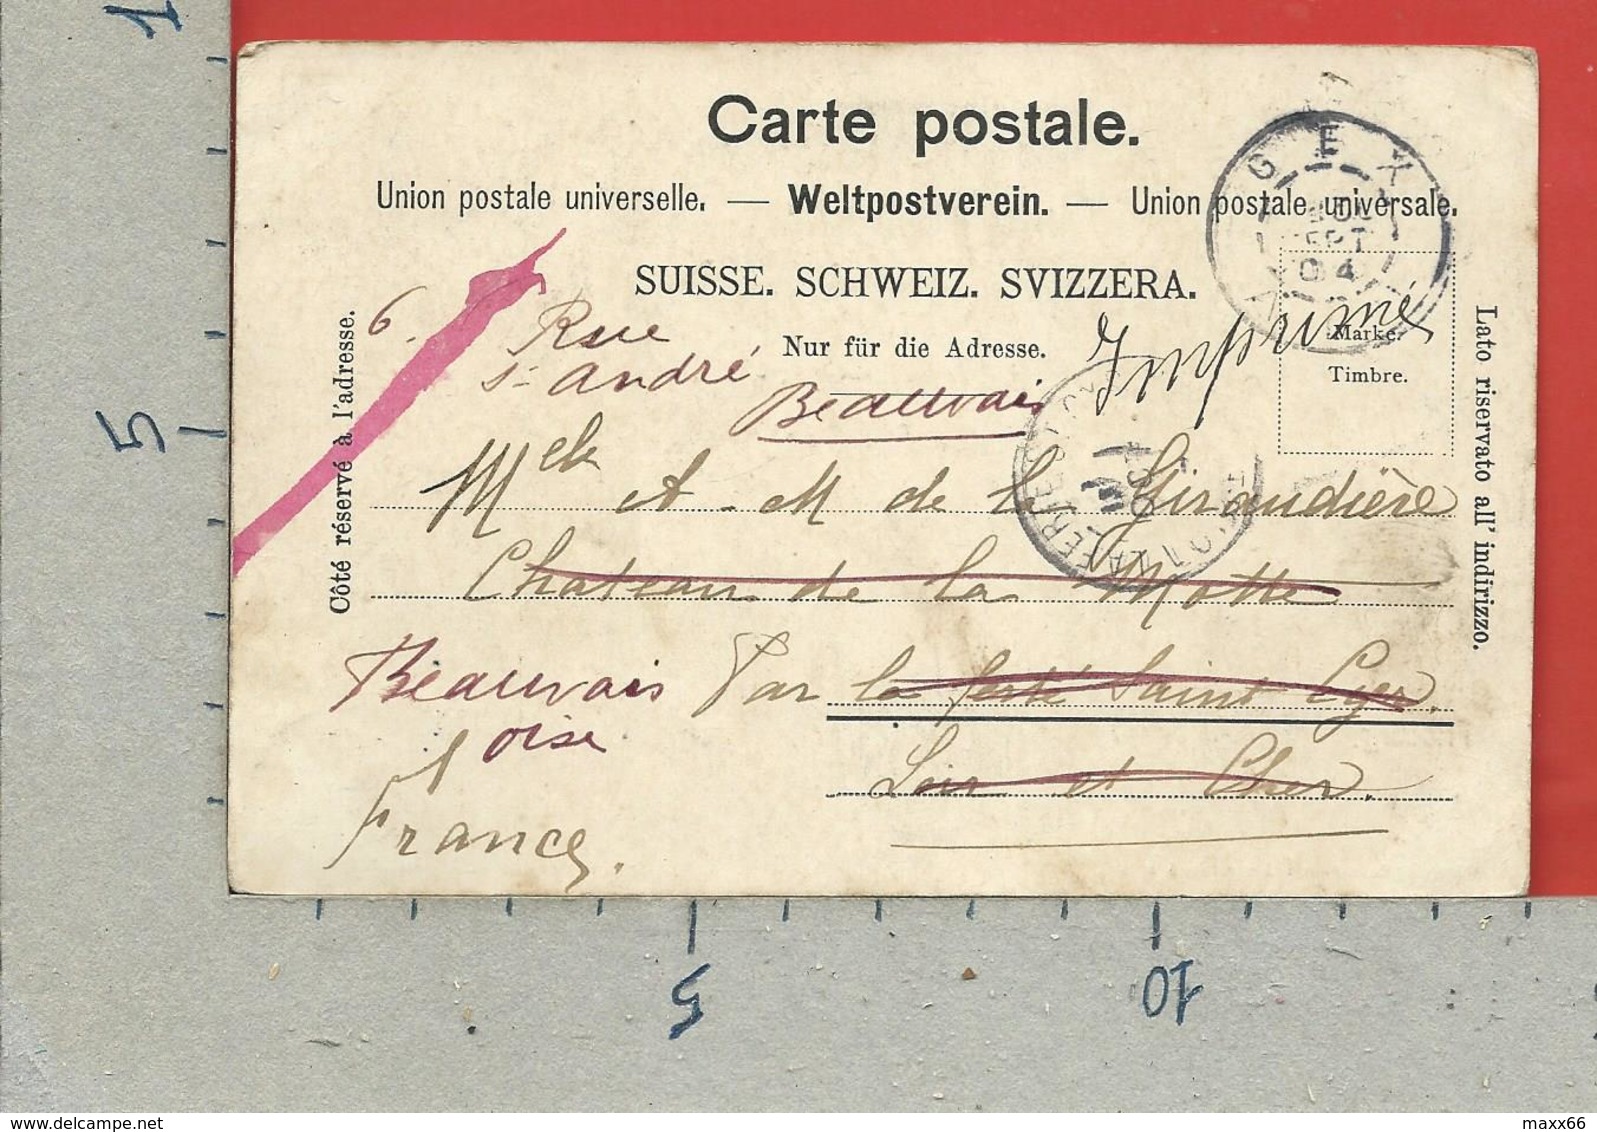 Carte postale.
Union postale universelle. — Weltpostverein. — Union postale universale.
SUISSE. SCHWEIZ. SVIZZERA.
Nur für die Adresse.
Côté réservé à l'adresse.
Lato riservato all' indirizzo.
Marke.
Timbre.
GEX
SEPT
04
Imprimé
6. Rue
St André
Beauvais
Melle A-M de la Giraudière
Chateau de la Motte
Par la ferté Saint Cyr.
Loir et Cher.
Beauvais
Oise
France.
1
5
5
10
delcampe.net
maxx66